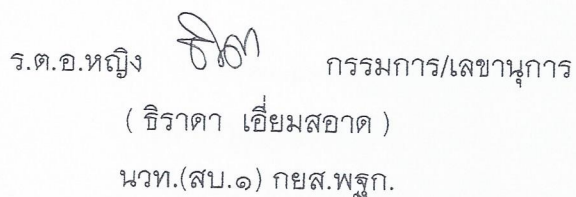 ร.ต.อ.หญิง กรรมการ/เลขานุการ
( ธิราดา เอี่ยมสอาด )
นวท.(สบ.๑) กยส.พฐก.